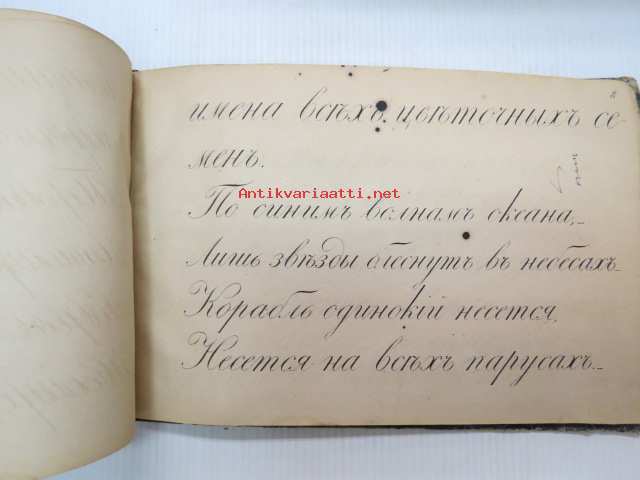 имена всѣхъ цвѣточныхъ се-
менъ.
Antikvariaatti.net
По синимъ волнамъ океана,
Лишь звѣзды блеснутъ въ небесахъ
Корабль одинокій несется,
Несется на всѣхъ парусахъ.